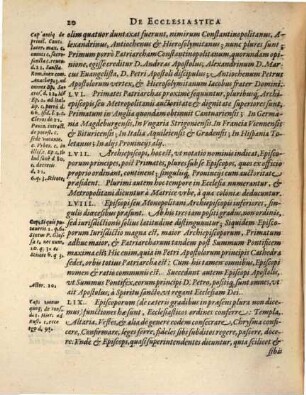 20 DE ECCLESIASTICA
olim quatuor duntaxat fuerunt, nimirum Constantinopolitanus, Alexandrinus,
Antiochenus & Hierosolymitanus; nunc plures sunt:
Primum porrò Patriarcham Constantinopolitanum, quorundam opinione,
egisse creditur D. Andreas Apostolus, Alexandrinum D. Marcus
Euangelista, D. Petri Apostoli discipulus; Antiochenum Petrus
Apostolorum vertex, & Hierosolymitanum Iacobus frater Domini.
LVI. Primates Patriarchas proximè sequuntur, pluribusq; Archiepiscopis
seu Metropolitanis auctoritate & dignitate superiores sunt;
Primatum in Anglia quondam obtinuit Cantuariensis; In Germania
Magdeburgensis, In Vngaria Strogonensis, In Francia Viennensis
& Bituricensis, In Italia Aquileiensis & Gradensis; In Hispania Toletanus,
in alijs Regnis alij.
LVII. Archiepiscopus, hoc est, vt notatio nominis indicat, Episcoporum
Princeps, post Primates, plures sub se Episcopos, quos ex officio
proprio ordinaret, continet; singulisq; Prouincijs cum auctoritate
praeest; At non pauci hoc tempore in Ecclesia numerantur, &
Metropolitani dicuntur à Matrice vrbe, à qua coloniae deducuntur.
LVIII. Episcopi seu Monopolitani Archiepiscopis inferiores, singulis
dioecesibus praesunt. Ab his tres iam positi gradus, non ordinis,
sed iurisdictionis solius latitudine distinguuntur; Siquidem Episcoporum
Iurisdictio magna est, maior Archiepiscoporum, Primatum
adhuc maior, & Patriarcharum tandem post Summum Pontificem
maxima est; Hic enim, quia in Petro Apostolorum principis Cathedra
sedet, orbis totius Patriarcha est; Cum suis tamen omnibus, Episcopi
nomen & ratio communis est. Succedunt autem Episcopi Apostolis,
vt Summus Pontifex, eorum principi D. Petro, positiq; sunt omnes, vti
ait Apostolus, à Spiritu sancto, vt regant Ecclesiam Dei.
LIX. Episcoporum (de caeteris gradibus in praesens plura non dicemus)
functiones hae sunt, Ecclesiasticos ordines conferre; Templa,
Altaria, Vestes, & alia id generis eodem consecrare, Chrysma conficere,
Confirmare, leges ferre, fideles sibi subditos regere, pascere, docere;
Vnde & Episcopi, quasi superintendentes dicuntur, quia scilicet &
sibi
Actor. 20.